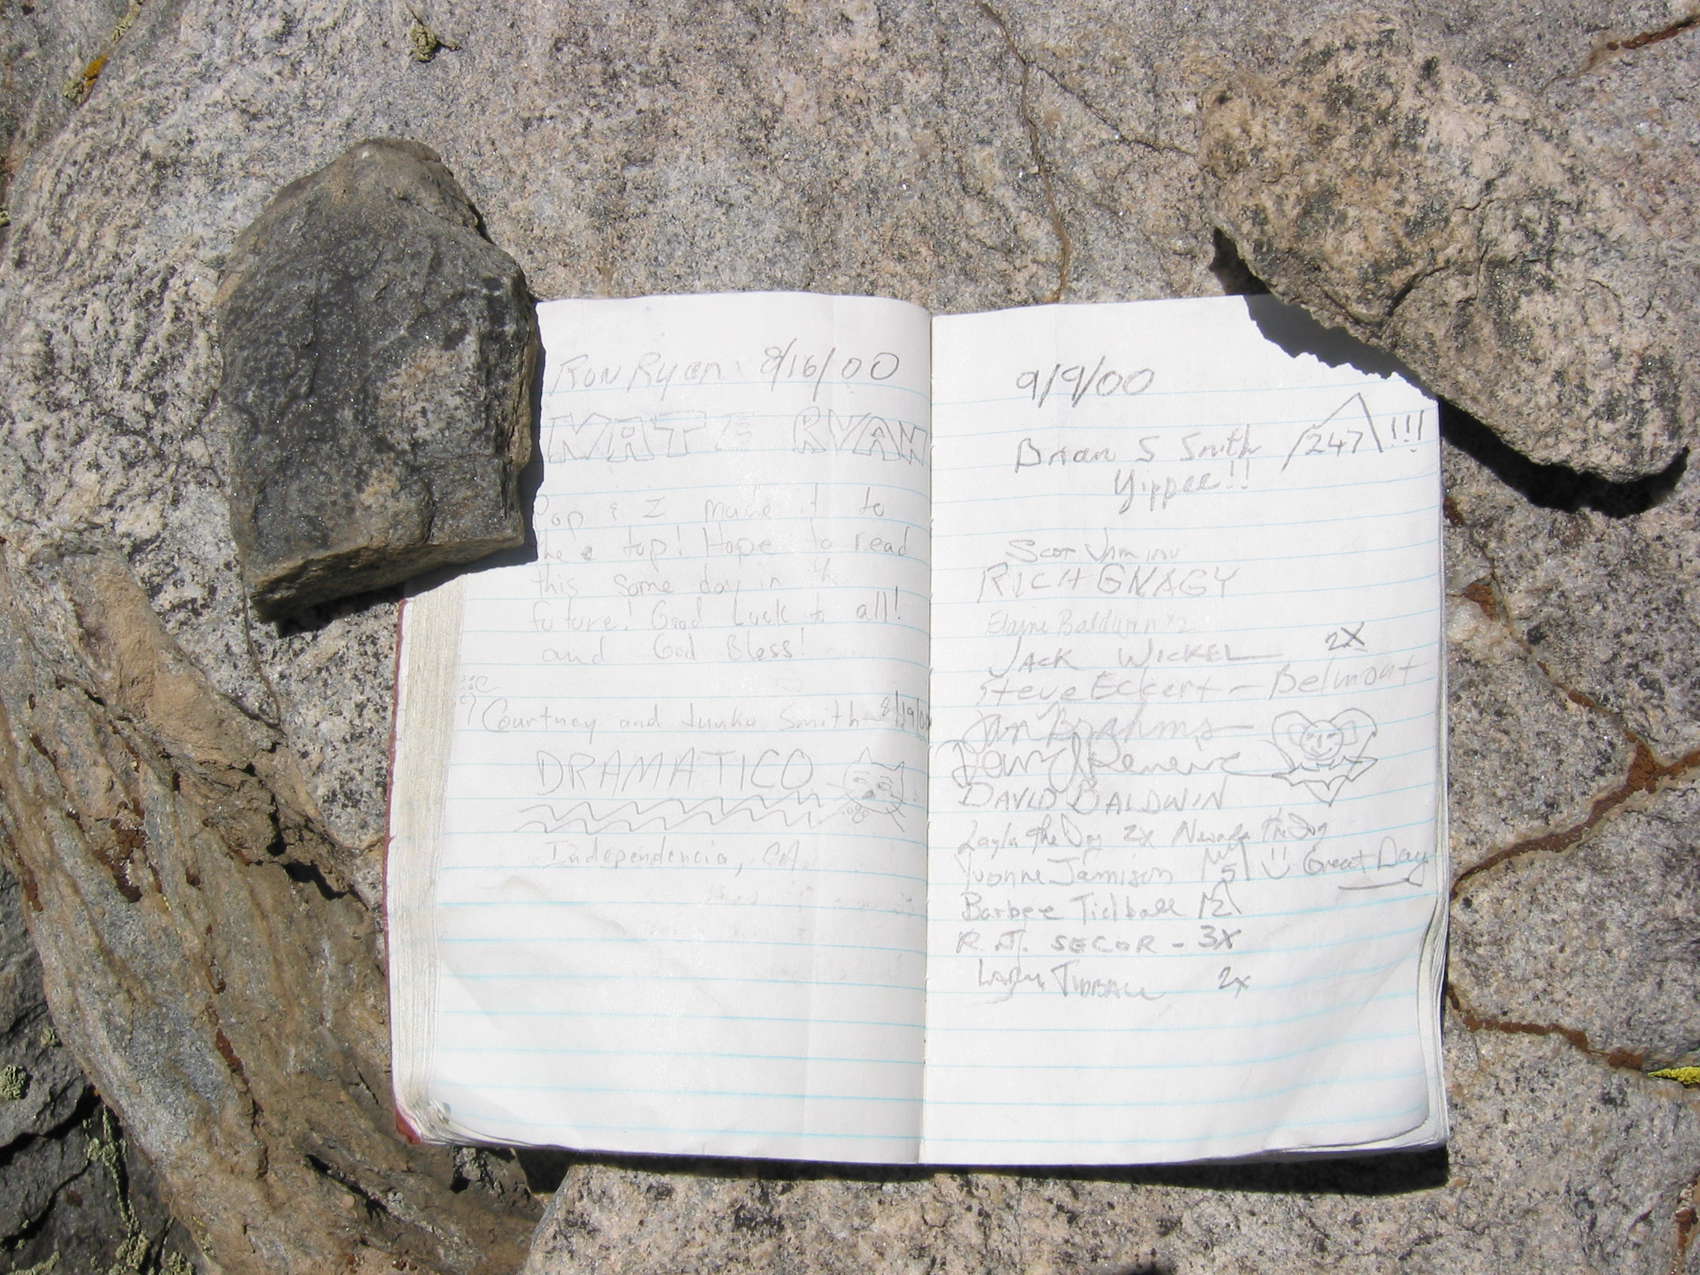 Ron Ryan 8/16/00
NATE RYAN
Pop & I made it to
the top! Hope to read
this some day in th
future! Good Luck to all!
and God Bless!
Courtney and Junko Smith - 8/19/00
DRAMATICO
Independencia, CA
9/9/00
Brian S Smith 247 !!!
Yippee!!
Scot
RICH GNAGY
Elaine Baldwin x2
JACK WICKEL 2X
Steve Eckert - Belmont
Jim Brahms
Doug
DAVID BALDWIN
Layla the Dog 2x Nevada the Dog
Yvonne Jamison 5 Great Day
Barbee Tidball 2
R.J. SECOR - 3X
Larry TIDBALL 2x